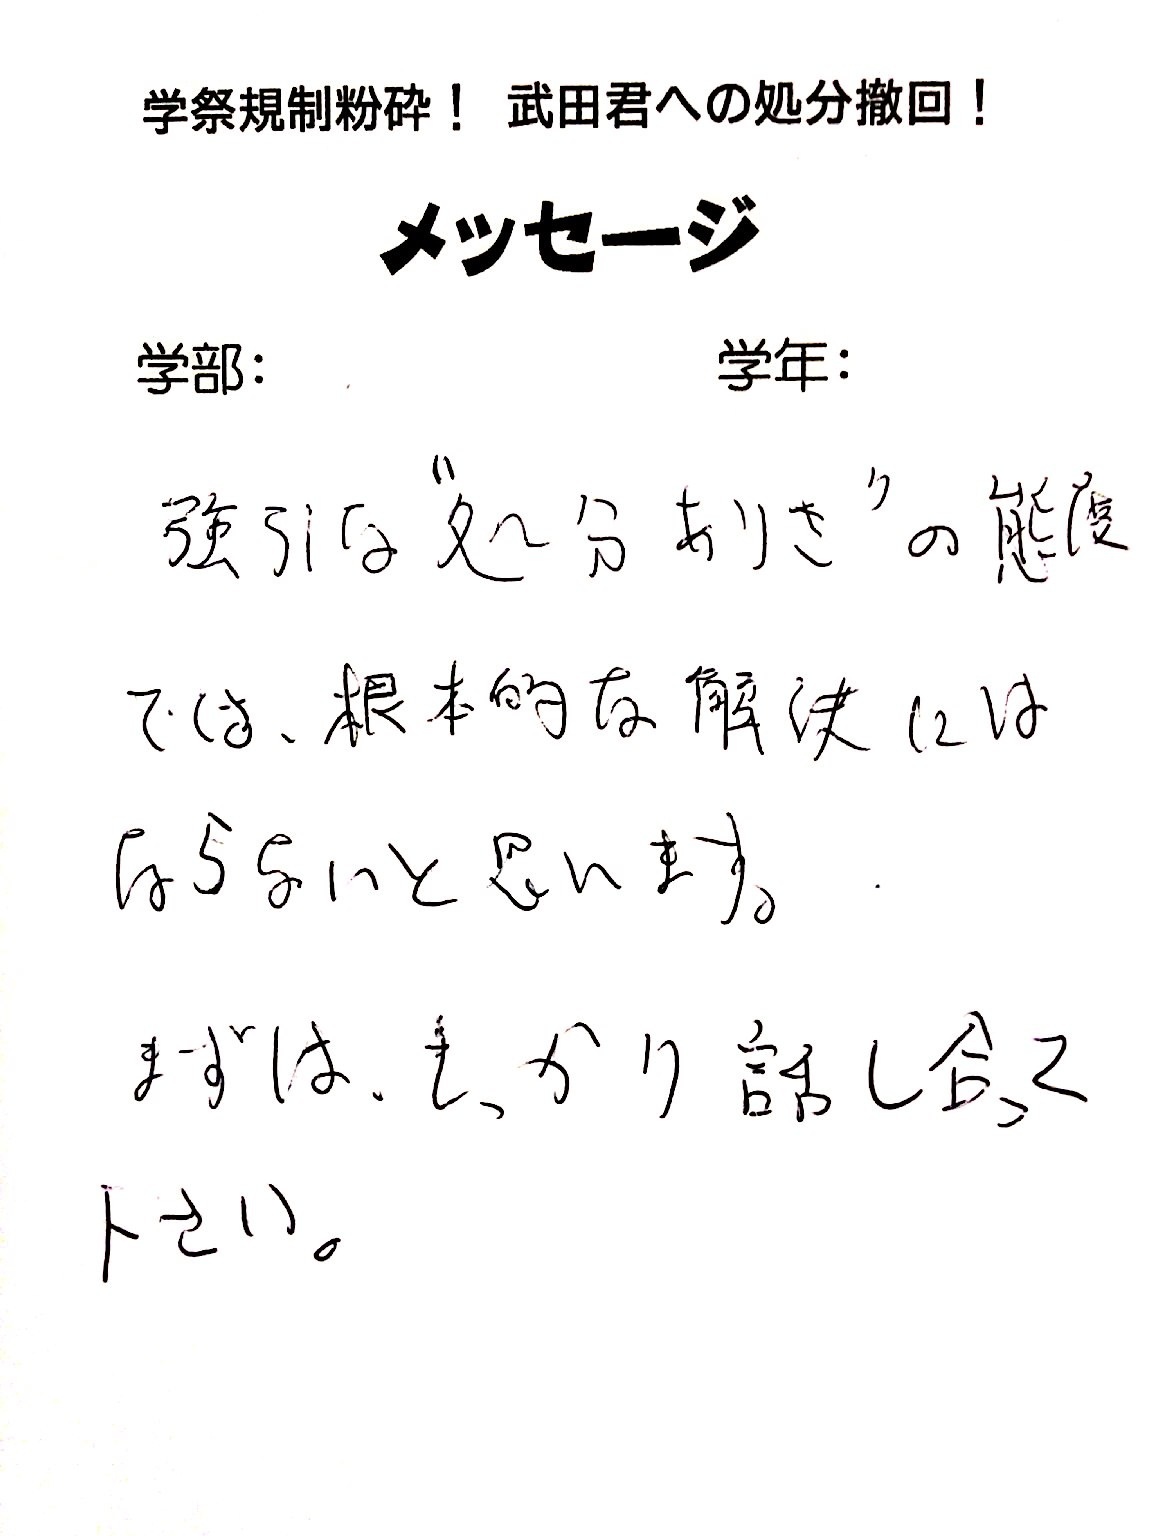 学祭規制粉砕！ 武田君への処分撤回！
メッセージ
学部： 学年：
強引な"処分ありき"の態度
では、根本的な解決には
ならないと思います。
まずは、しっかり話し合って
下さい。